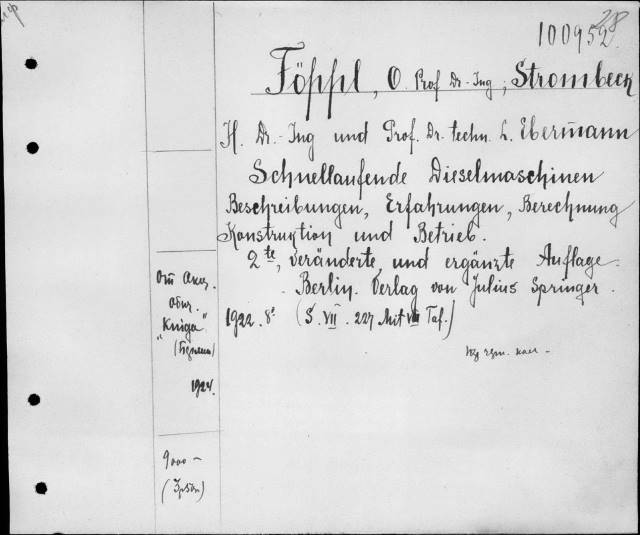 28
100952
Föppl, O. Prof Dr-Ing; Strombeck
H. Dr.-Ing und Prof. Dr. techn. L. Ebermann
Schnellaufende Dieselmaschinen
Beschreibungen, Erfahrungen, Berechnung
Konstruktion und Betrieb.
2te, veränderte und ergänzte Auflage.
Berlin. Verlag von Julius Springer.
1922. 8° (S. VII. 227 Mit VIII Taf.)
От Акц.
Общ.
"Книга"
(Берлин)
1924.
9000 —